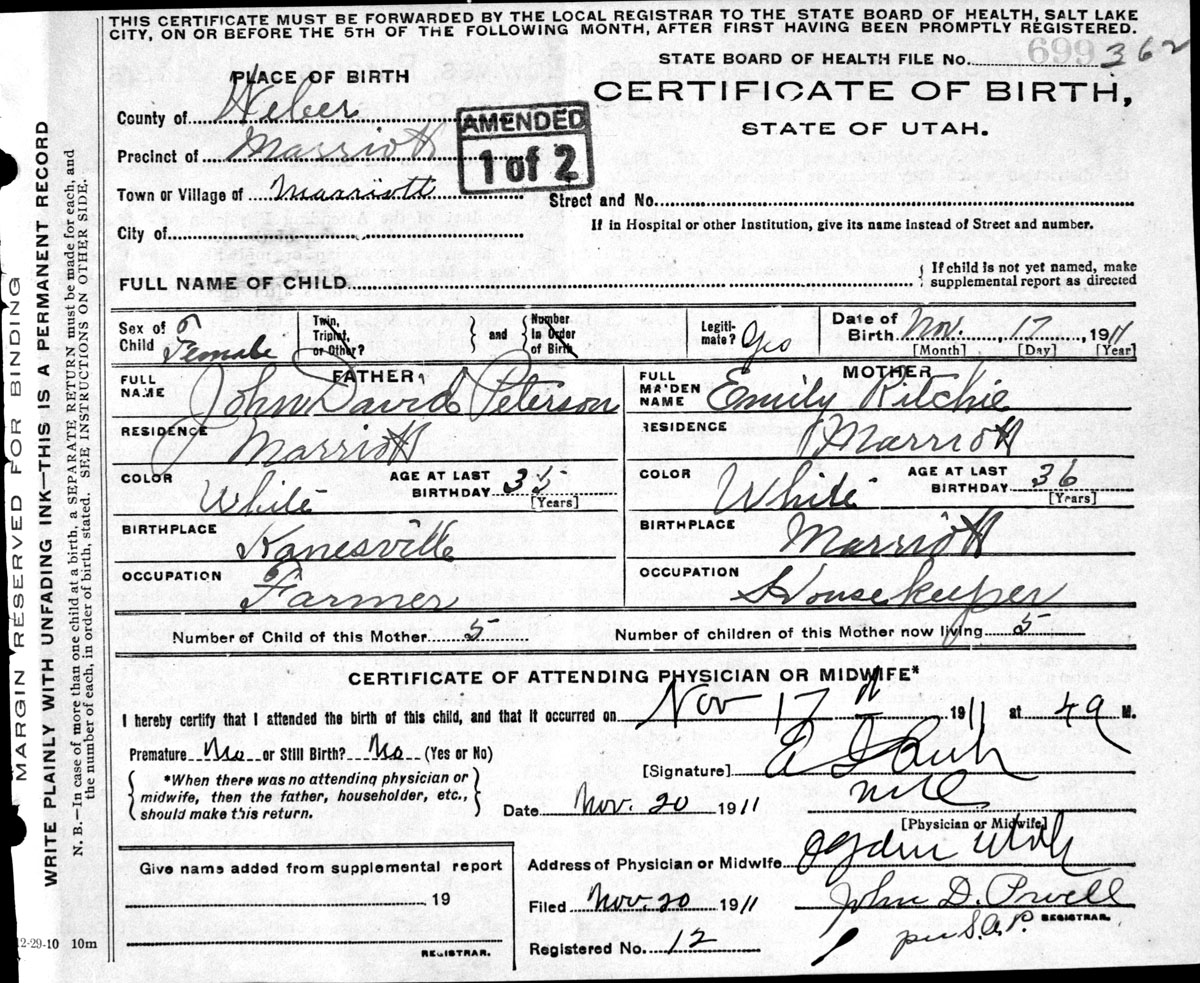 THIS CERTIFICATE MUST BE FORWARDED BY THE LOCAL REGISTRAR TO THE STATE BOARD OF HEALTH, SALT LAKE
CITY, ON OR BEFORE THE 5TH OF THE FOLLOWING MONTH, AFTER FIRST HAVING BEEN PROMPTLY REGISTERED.
STATE BOARD OF HEALTH FILE No. 362
PLACE OF BIRTH
CERTIFICATE OF BIRTH,
STATE OF UTAH.
County of Weber
AMENDED
1 of 2
Precinct of Marriott
Town or Village of Marriott
Street and No.
City of
If in Hospital or other Institution, give its name instead of Street and number.
FULL NAME OF CHILD { If child is not yet named, make
supplemental report as directed
Sex of Child Female
Twin, Triplet, or Other? } and { Number In Order of Birth
Legiti-mate? Yes
Date of Birth Nov. 17, 1911
[Month] [Day] [Year]
FATHER
MOTHER
FULL NAME John David Peterson
FULL MAIDEN NAME Emily Ritchie
RESIDENCE Marriott
RESIDENCE Marriott
COLOR White AGE AT LAST BIRTHDAY 35 [Years]
COLOR White AGE AT LAST BIRTHDAY 36 [Years]
BIRTHPLACE Kanesville
BIRTHPLACE Marriott
OCCUPATION Farmer
OCCUPATION Housekeeper
Number of Child of this Mother 5 Number of children of this Mother now living 5
CERTIFICATE OF ATTENDING PHYSICIAN OR MIDWIFE*
I hereby certify that I attended the birth of this child, and that it occurred on Nov 17 1911 at 4 a M.
Premature No or Still Birth? No (Yes or No)
[Signature]
{ *When there was no attending physician or
midwife, then the father, householder, etc.,
should make this return. }
Date Nov. 20 1911
[Physician or Midwife]
Address of Physician or Midwife Ogden Utah
Give name added from supplemental report
19
REGISTRAR.
Filed Nov. 20 1911 John D. Powell
REGISTRAR.
per S.A.P.
Registered No. 12
12-29-10 10m
MARGIN RESERVED FOR BINDING
WRITE PLAINLY WITH UNFADING INK—THIS IS A PERMANENT RECORD
N. B.—In case of more than one child at a birth, a SEPARATE RETURN must be made for each, and
the number of each, in order of birth, stated. SEE INSTRUCTIONS ON OTHER SIDE.